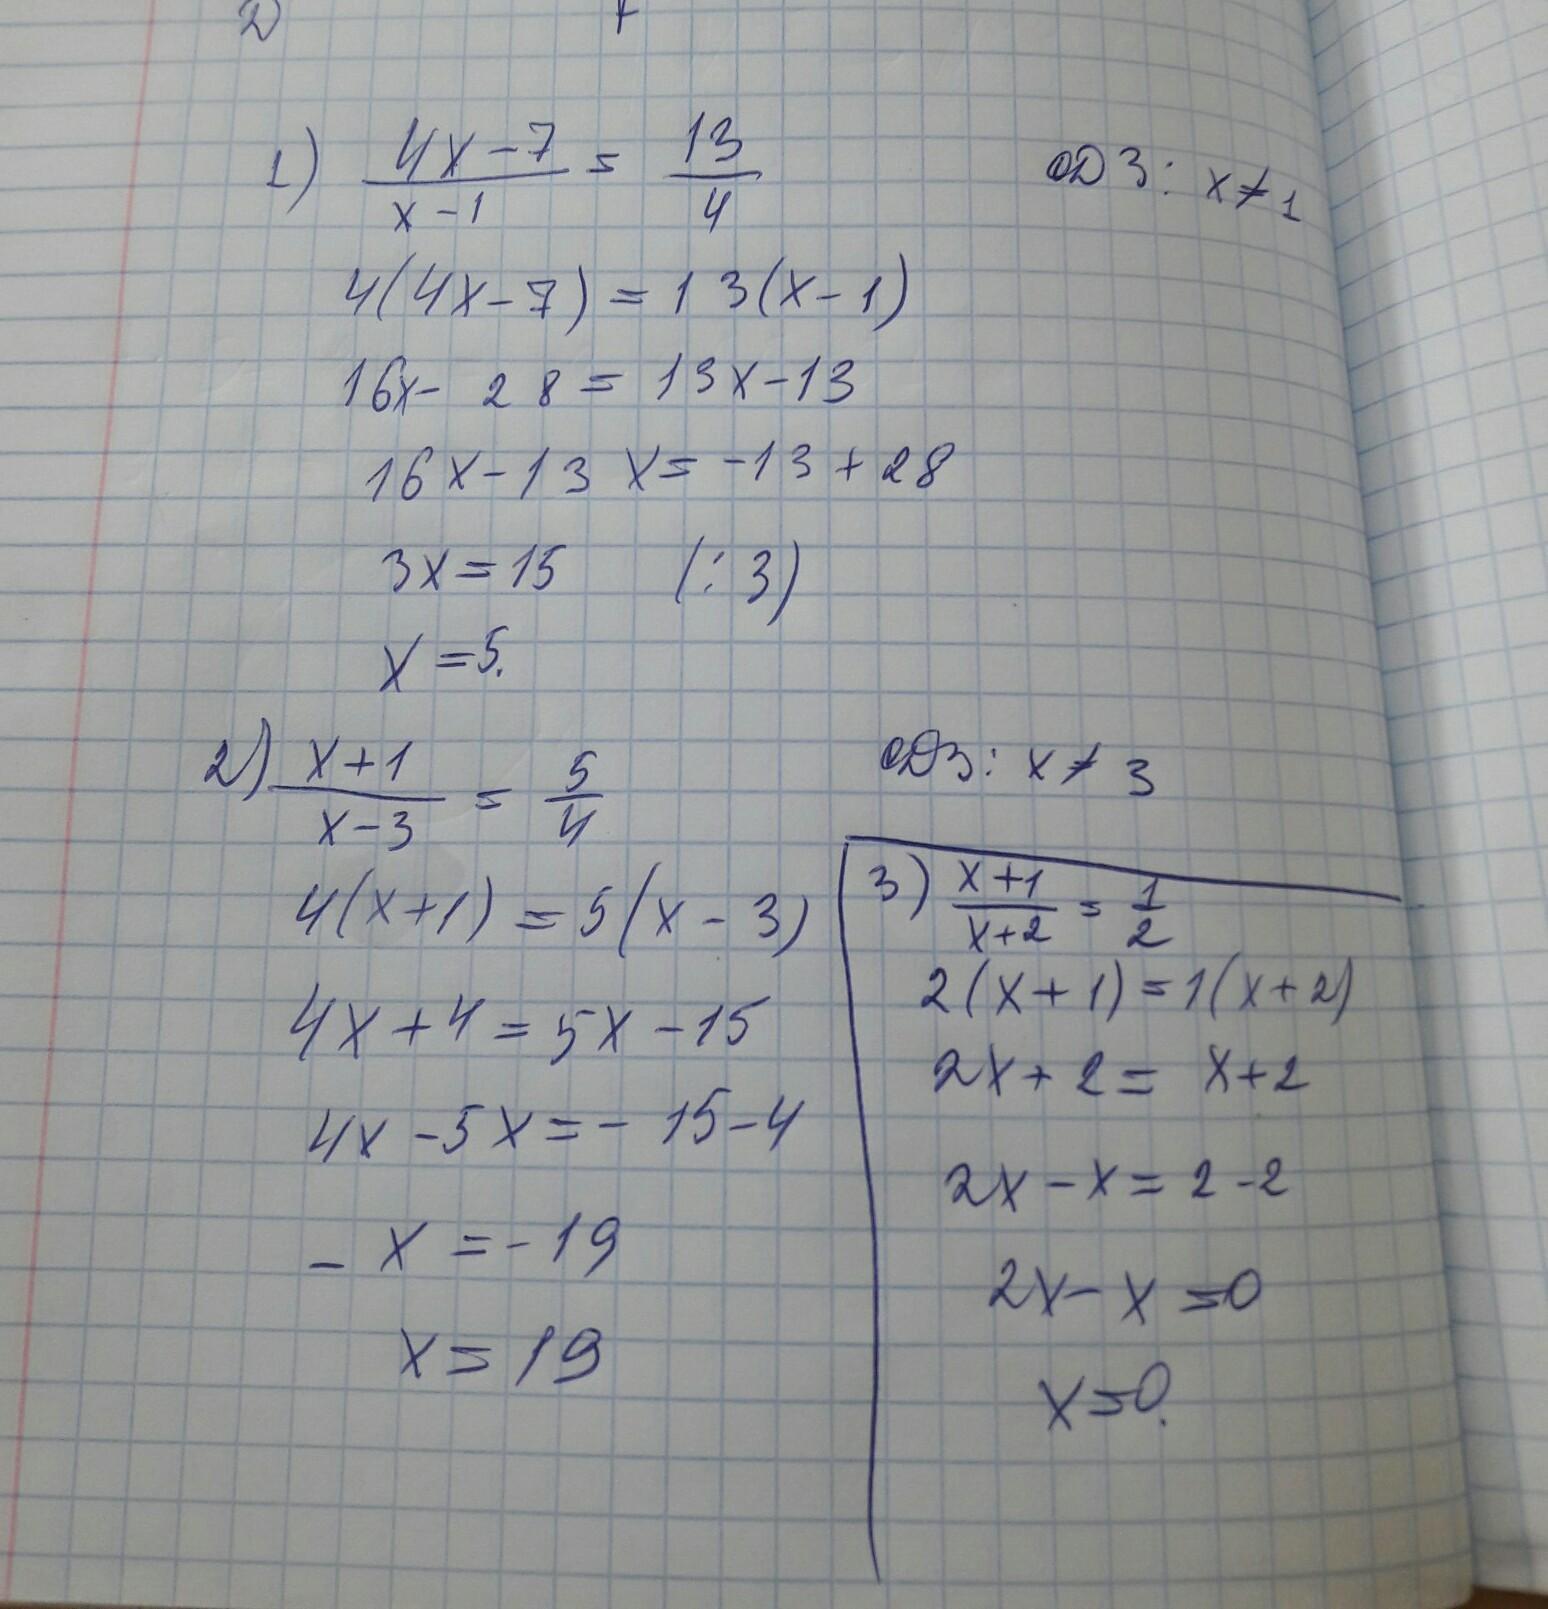 1) (4x-7)/(x-1) = 13/4 ОДЗ: x≠1
4(4x-7)=13(x-1)
16x- 28= 13x-13
16x-13x=-13+28
3x=15 (:3)
x=5.
2) (x+1)/(x-3) = 5/4 ОДЗ: x≠3
4(x+1)=5(x-3)
4x+4=5x-15
4x-5x=-15-4
-x=-19
x=19
3) (x+1)/(x+2) = 1/2
2(x+1)=1(x+2)
2x+2= x+2
2x-x=2-2
2x-x=0
x=0.